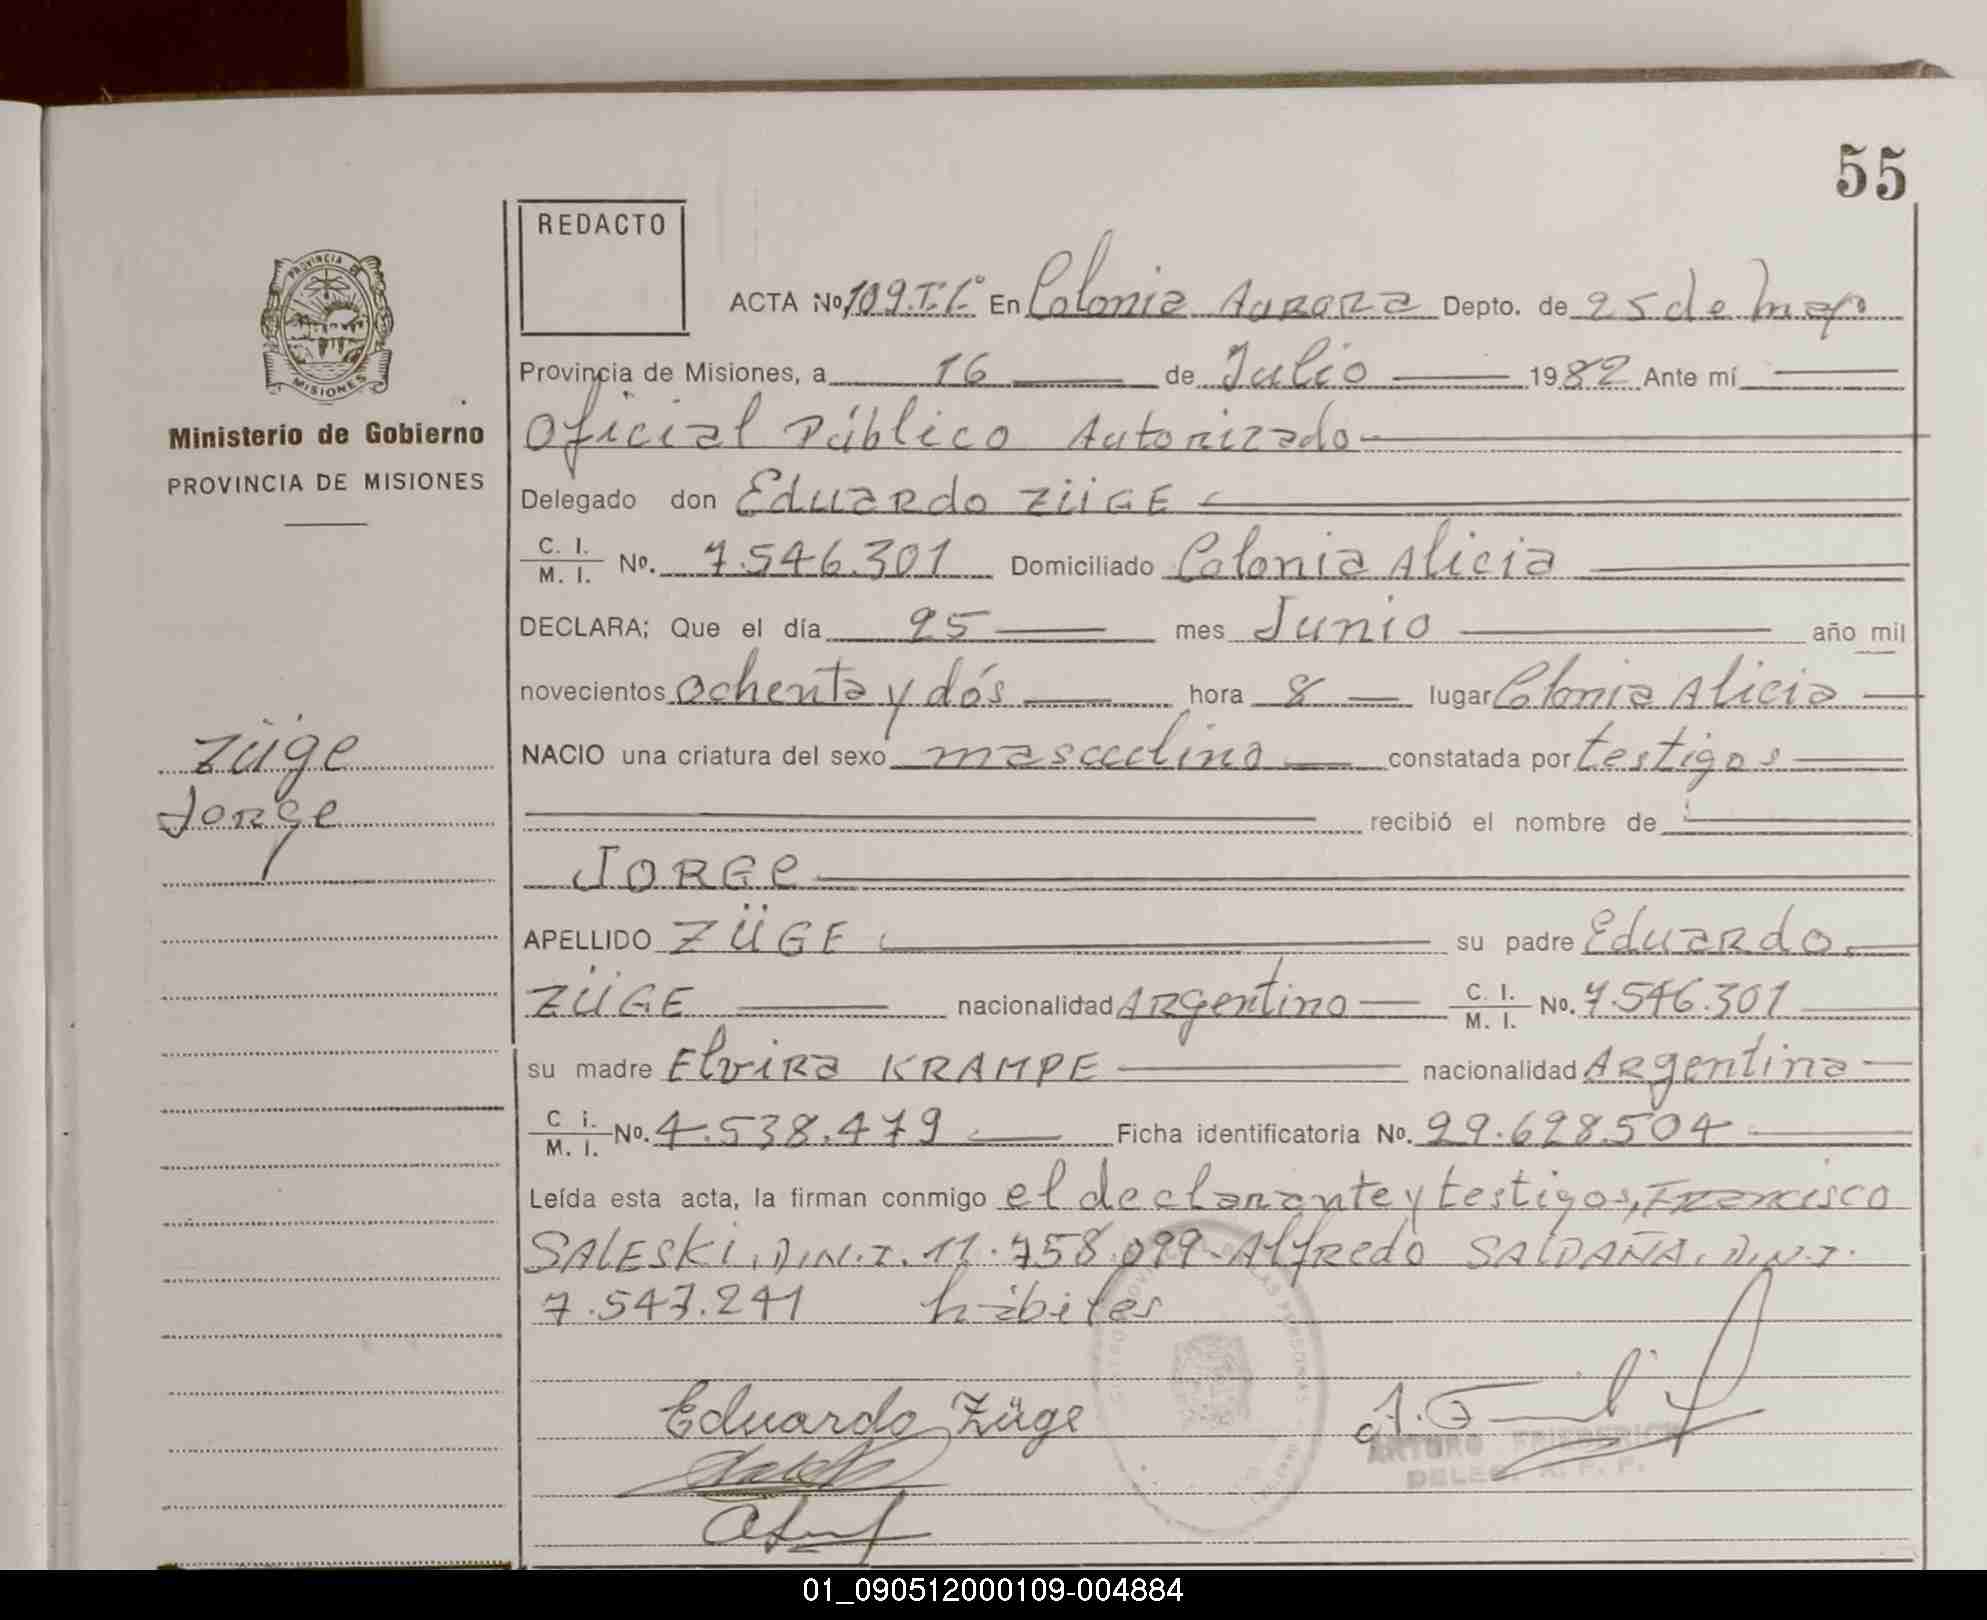 55
REDACTO
PROVINCIA DE
MISIONES
Ministerio de Gobierno
PROVINCIA DE MISIONES
ACTA No. 109.T.I.º En Colonia Aurora Depto. de 25 de Mayo
Provincia de Misiones, a 16 de Julio 1982 Ante mí
Oficial Público Autorizado
Delegado don Eduardo ZÜGE
C. I. / M. I. No. 7.546.301 Domiciliado Colonia Alicia
DECLARA; Que el día 25 mes Junio año mil
novecientos ochenta y dós hora 8 lugar Colonia Alicia
Züge
NACIO una criatura del sexo masculino constatada por testigos
Jorge
recibió el nombre de
JORGe
APELLIDO ZÜGE su padre Eduardo
ZÜGE nacionalidad Argentino C. I. / M. I. No. 7.546.301
su madre Elvira KRAMPE nacionalidad Argentina
C. i. / M. I. No. 4.538.479 Ficha identificatoria No. 29.628.504
Leída esta acta, la firman conmigo el declarante y testigos, Francisco
SALESKi, D.N.I. 11.758.099-Alfredo SALDAÑA. D.N.I.
7.547.241 hábiles
Eduardo Züge
ARTURO FRIEDERICH
DELEG. R. P. P.
01_090512000109-004884